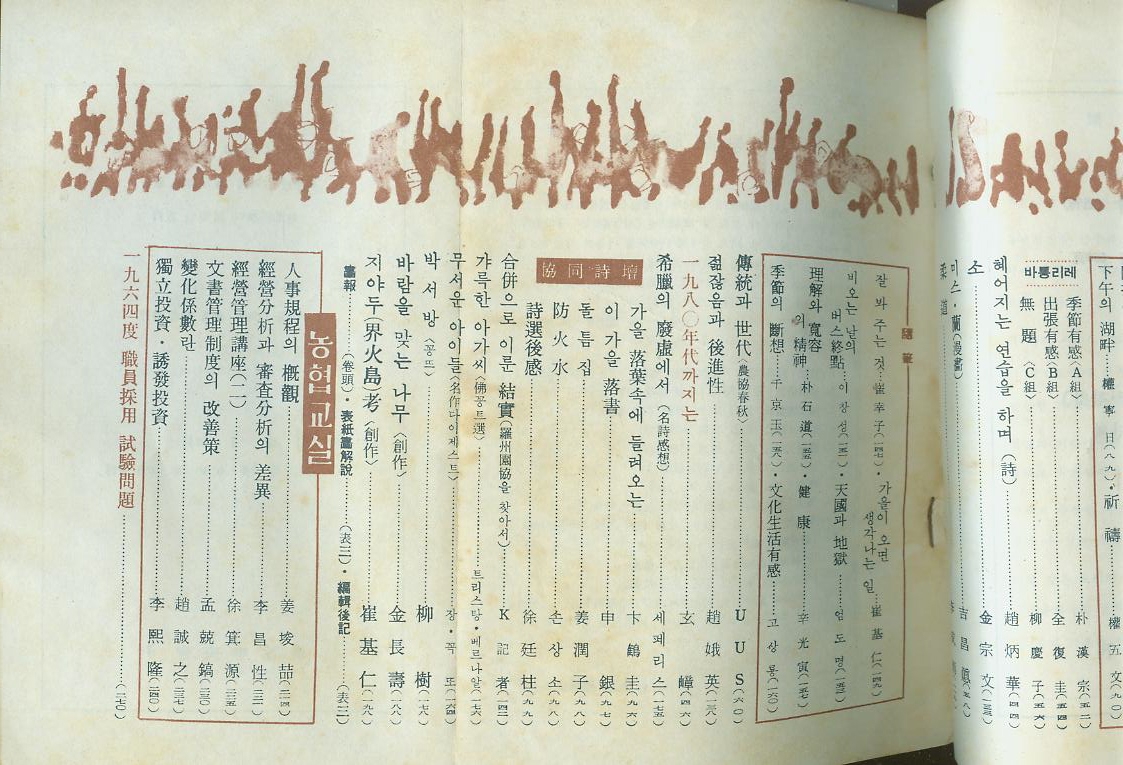 下午의 湖畔……權 寧 日(八九)・祈 禱……權 五 文(九〇)
바통리레
季節有感〈A組〉……朴 漢 宗(五二)
出張有感〈B組〉……全 復 圭(五四)
無 題〈C組〉……柳 慶 子(五六)
헤어지는 연습을 하며(詩)……趙 炳 華(四四)
소……金 宗 文
미스・蘭(漫畫)……吉 昌
柔 道
隨 筆
잘 봐 주는 것…崔 幸 子(一四七)・가을이 오면 생각나는 일…崔 基 仁(一四九)
비오는 날의 버스 終點…이 창 성・天國과 地獄……엄 도 명
理解와 寬容의 精神…朴 石 道(一五五)・健 康……辛 光 寅(一五七)
季節의 斷想…千 京 玉(一五八)・文化生活有感……고 상 룡(一六〇)
傳統과 世代〈農協春秋〉……U U S(六〇)
젊잖음과 後進性……趙 娥 英(三八)
一九八〇年代까지는……玄 㠊(四六)
希臘의 廢虛에서(名詩感想)……세 페 리 스(一七五)
協同詩壇
가을 落葉속에 들려오는……卞 鶴 圭(九六)
이 가을 落書……申 銀(九七)
돌 틈 집……姜 潤 子(九八)
防 火 水……손 상 소(九八)
詩選後感……徐 廷 桂(九九)
合併으로 이룬 結實(羅州園協을 찾아서)……K 記 者
갸륵한 아가씨〈佛꽁트選〉……트리스탕・베르나알(一七六)
무서운 아이들〈名作다이제스트〉……장・꼭 또(一六四)
박 서 방〈꽁뜨〉……柳 樹(一七八)
바람을 맞는 나무〈創作〉……金 長 壽(一八八)
지야두(界火島)考〈創作〉……崔 基 仁(一九八)
畫報……(卷頭)・表紙畫解說……(表二)・編輯後記……(表三)
농협교실
人事規程의 槪觀……姜 埈 喆(二一四)
經營分析과 審査分析의 差異……李 昌 性
經營管理講座(二)……徐 箕 源
文書管理制度의 改善策……孟 兢 鎬
變化係數란……趙 誠 之
獨立投資・誘發投資……李 熙 隆
一九六四度 職員採用 試驗問題……(二七〇)